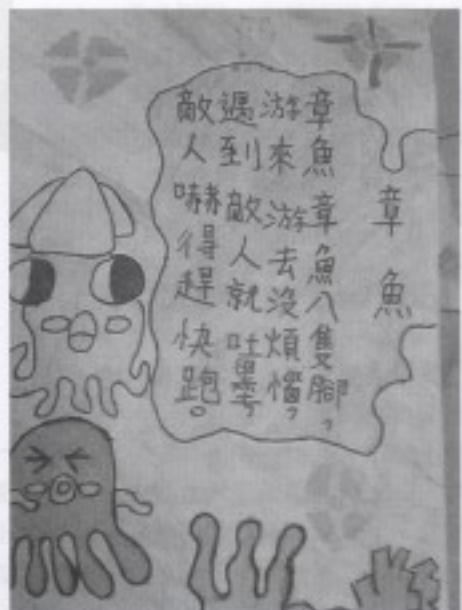 章魚
章魚章魚八隻腳，
游來游去沒煩惱，
遇到敵人就吐墨，
敵人嚇得趕快跑。